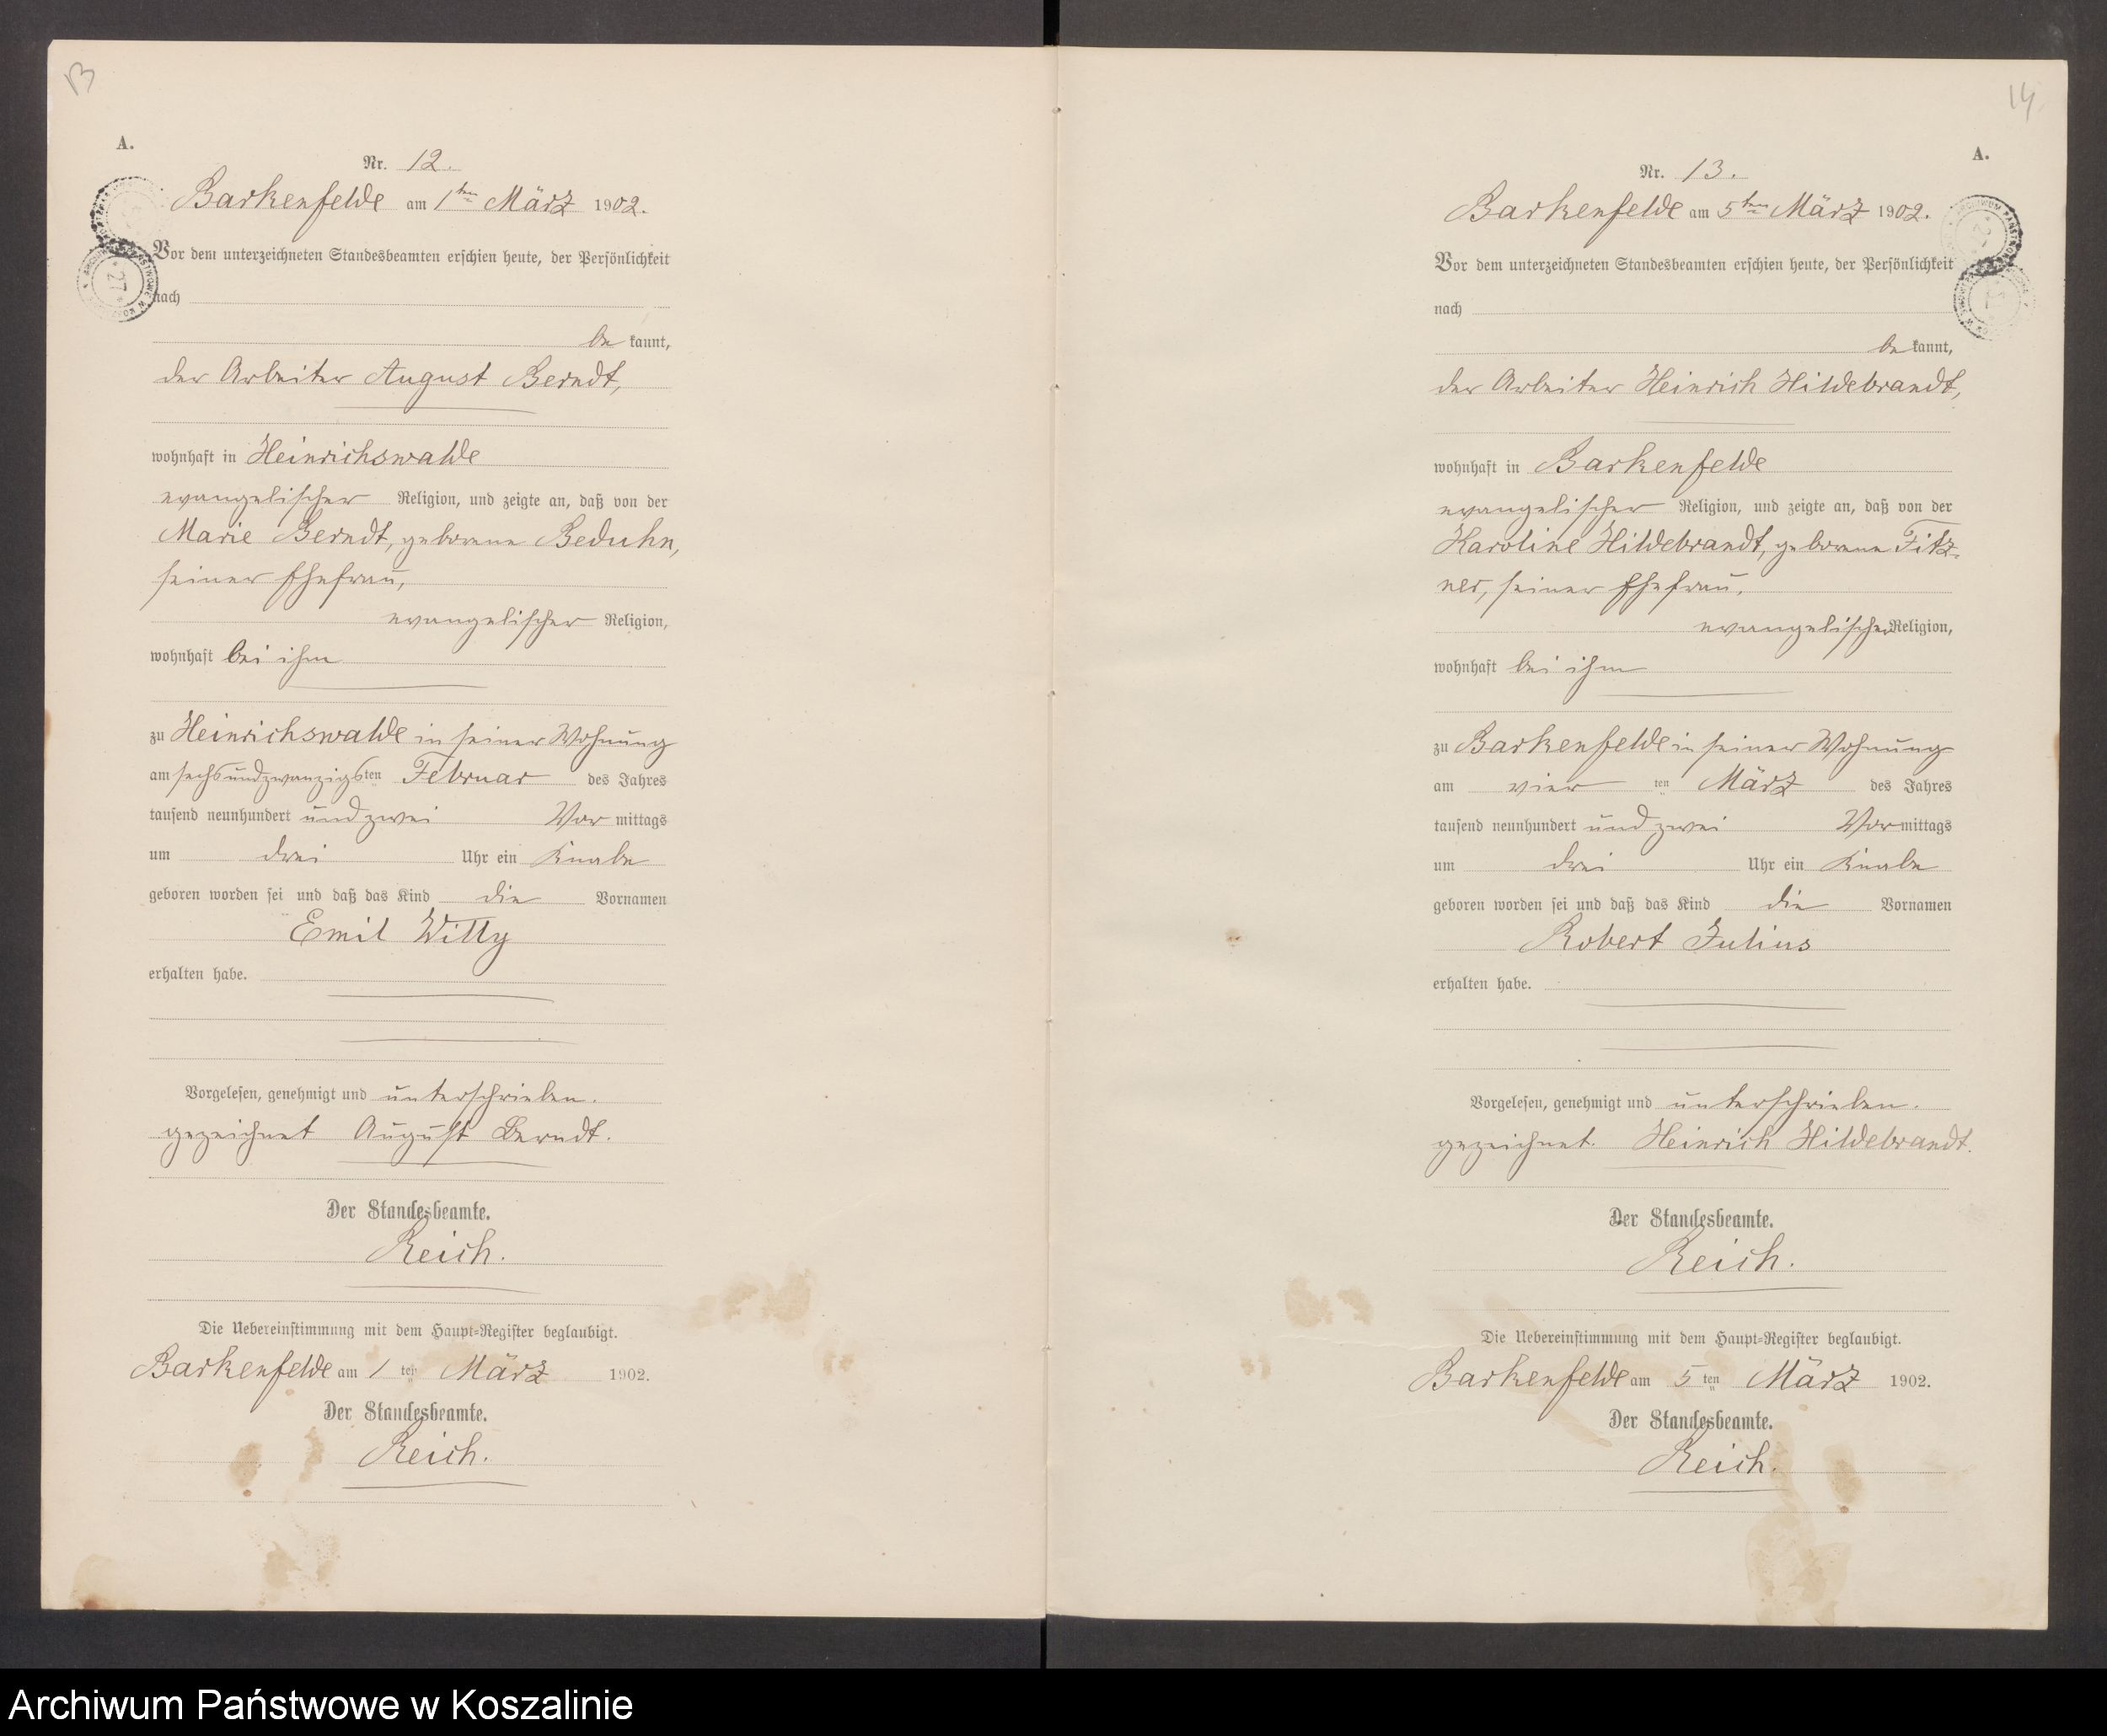 13
A.
Nr. 12.
Barkenfelde am 1ten März 1902.
Vor dem unterzeichneten Standesbeamten erschien heute, der Persönlichkeit
nach
be kannt,
der Arbeiter August Berndt,
wohnhaft in Heinrichswalde
evangelischer Religion, und zeigte an, daß von der
Marie Berndt, geborene Beduhn,
seiner Ehefrau,
evangelischer Religion,
wohnhaft bei ihm
zu Heinrichswalde in seiner Wohnung
am sechsundzwanzigsten Februar des Jahres
tausend neunhundert und zwei Vor mittags
um drei Uhr ein Knabe
geboren worden sei und daß das Kind die Vornamen
Emil Willy
erhalten habe.
Vorgelesen, genehmigt und unterschrieben.
gezeichnet August Berndt.
Der Standesbeamte.
Reich.
Die Uebereinstimmung mit dem Haupt=Register beglaubigt.
Barkenfelde am 1 ten März 1902.
Der Standesbeamte.
Reich.
14
A.
Nr. 13.
Barkenfelde am 5ten März 1902.
Vor dem unterzeichneten Standesbeamten erschien heute, der Persönlichkeit
nach
be kannt,
der Arbeiter Heinrich Hildebrandt,
wohnhaft in Barkenfelde
evangelischer Religion, und zeigte an, daß von der
Karoline Hildebrandt, geborene Fitz-
ner, seiner Ehefrau,
evangelischer Religion,
wohnhaft bei ihm
zu Barkenfelde in seiner Wohnung
am vier ten März des Jahres
tausend neunhundert und zwei Vor mittags
um drei Uhr ein Knabe
geboren worden sei und daß das Kind die Vornamen
Robert Julius
erhalten habe.
Vorgelesen, genehmigt und unterschrieben.
gezeichnet. Heinrich Hildebrandt.
Der Standesbeamte.
Reich.
Die Uebereinstimmung mit dem Haupt=Register beglaubigt.
Barkenfelde am 5 ten März 1902.
Der Standesbeamte.
Reich.
Archiwum Państwowe w Koszalinie